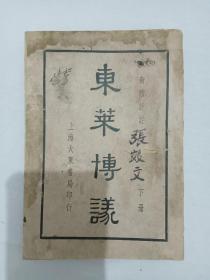 東萊博議
張煥文
下冊
上海大東書局印行